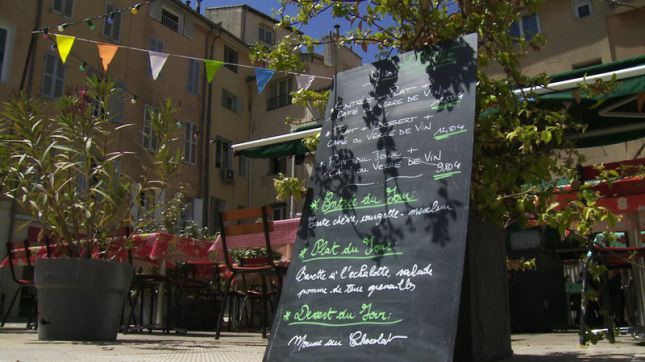 Entrée + Plat +
Café ou verre de vin
* Plat + Dessert +
Café ou verre de vin 12,80€
* Plat du Jour +
Café ou verre de vin 9,80€
* Entrée du Jour:
Tarte chèvre, courgette - mesclun
* Plat du Jour:
Bavette à l'échalotte, salade
pomme de terre grenailles
* Dessert du Jour:
Mousse au Chocolat